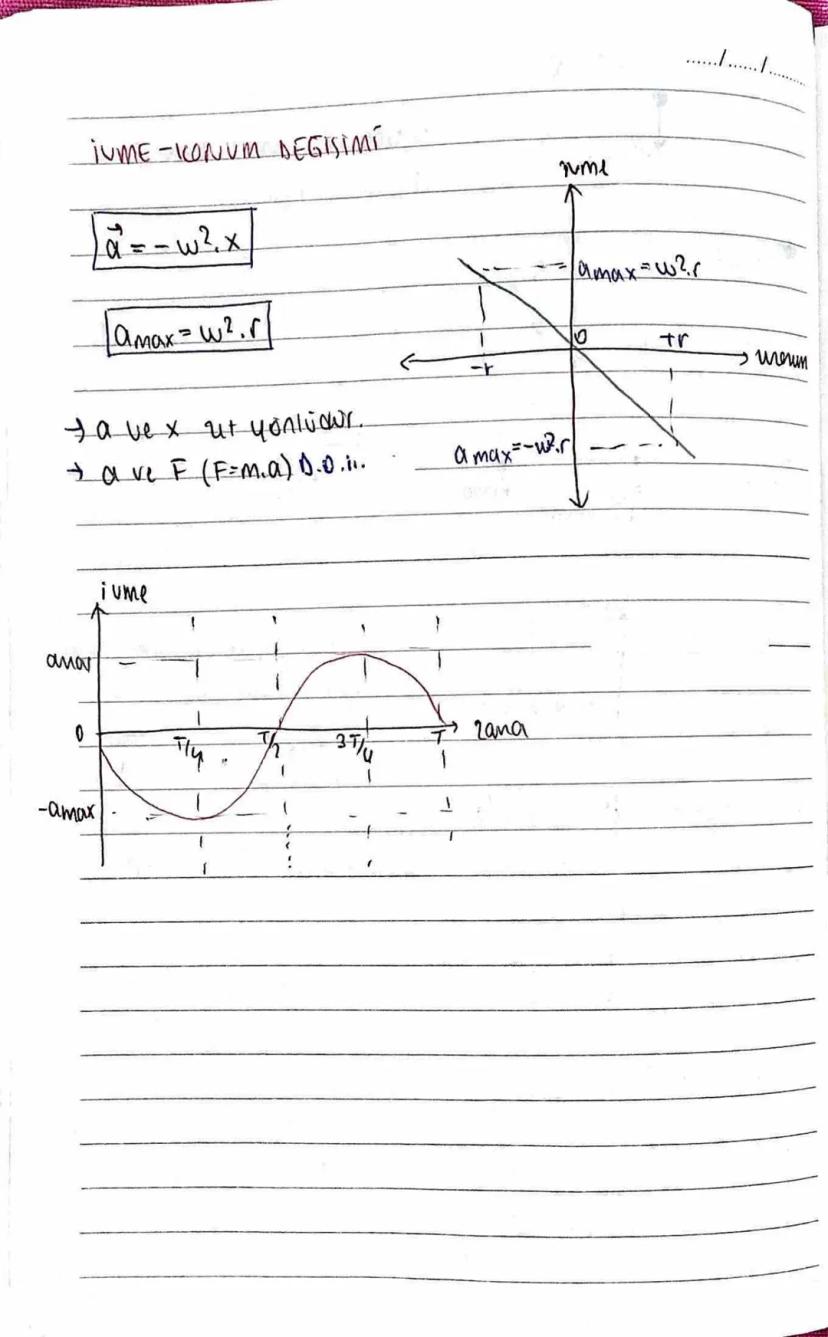 ....../....../.........
İVME-KONUM DEĞİŞİMİ
a⃗ = -w².x
amax = w².r
→ a ve x zıt yönlüdür.
→ a ve F (F=m.a) D.O.
ivme
amax = w².r
-r
0
+r
amax = -w².r
ivme
amax
0
T/4
T/2
3T/4
T
-amax